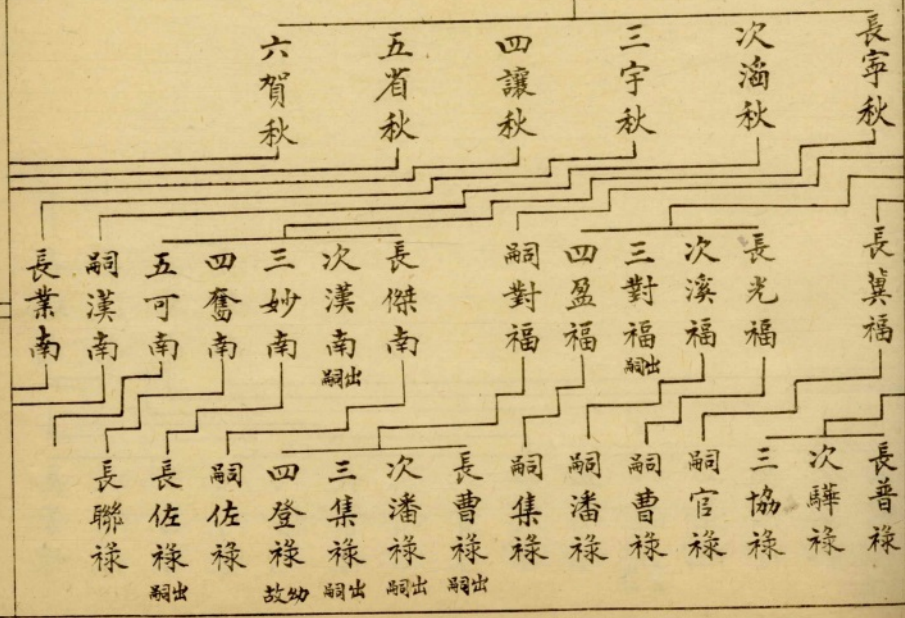 長寕秋
次滀秋
三宇秋
四讓秋
五省秋
六賀秋
長冀福
長光福
次溪福
三對福 出嗣
四盈福
嗣對福
長傑南
次漢南 出嗣
三妙南
四奮南
五可南
嗣漢南
長業南
長普祿
次驊祿
三協祿
嗣官祿
嗣曹祿
嗣潘祿
嗣集祿
長曹祿 出嗣
次潘祿 出嗣
三集祿 出嗣
四登祿 幼故
嗣佐祿
長佐祿 出嗣
長聯祿